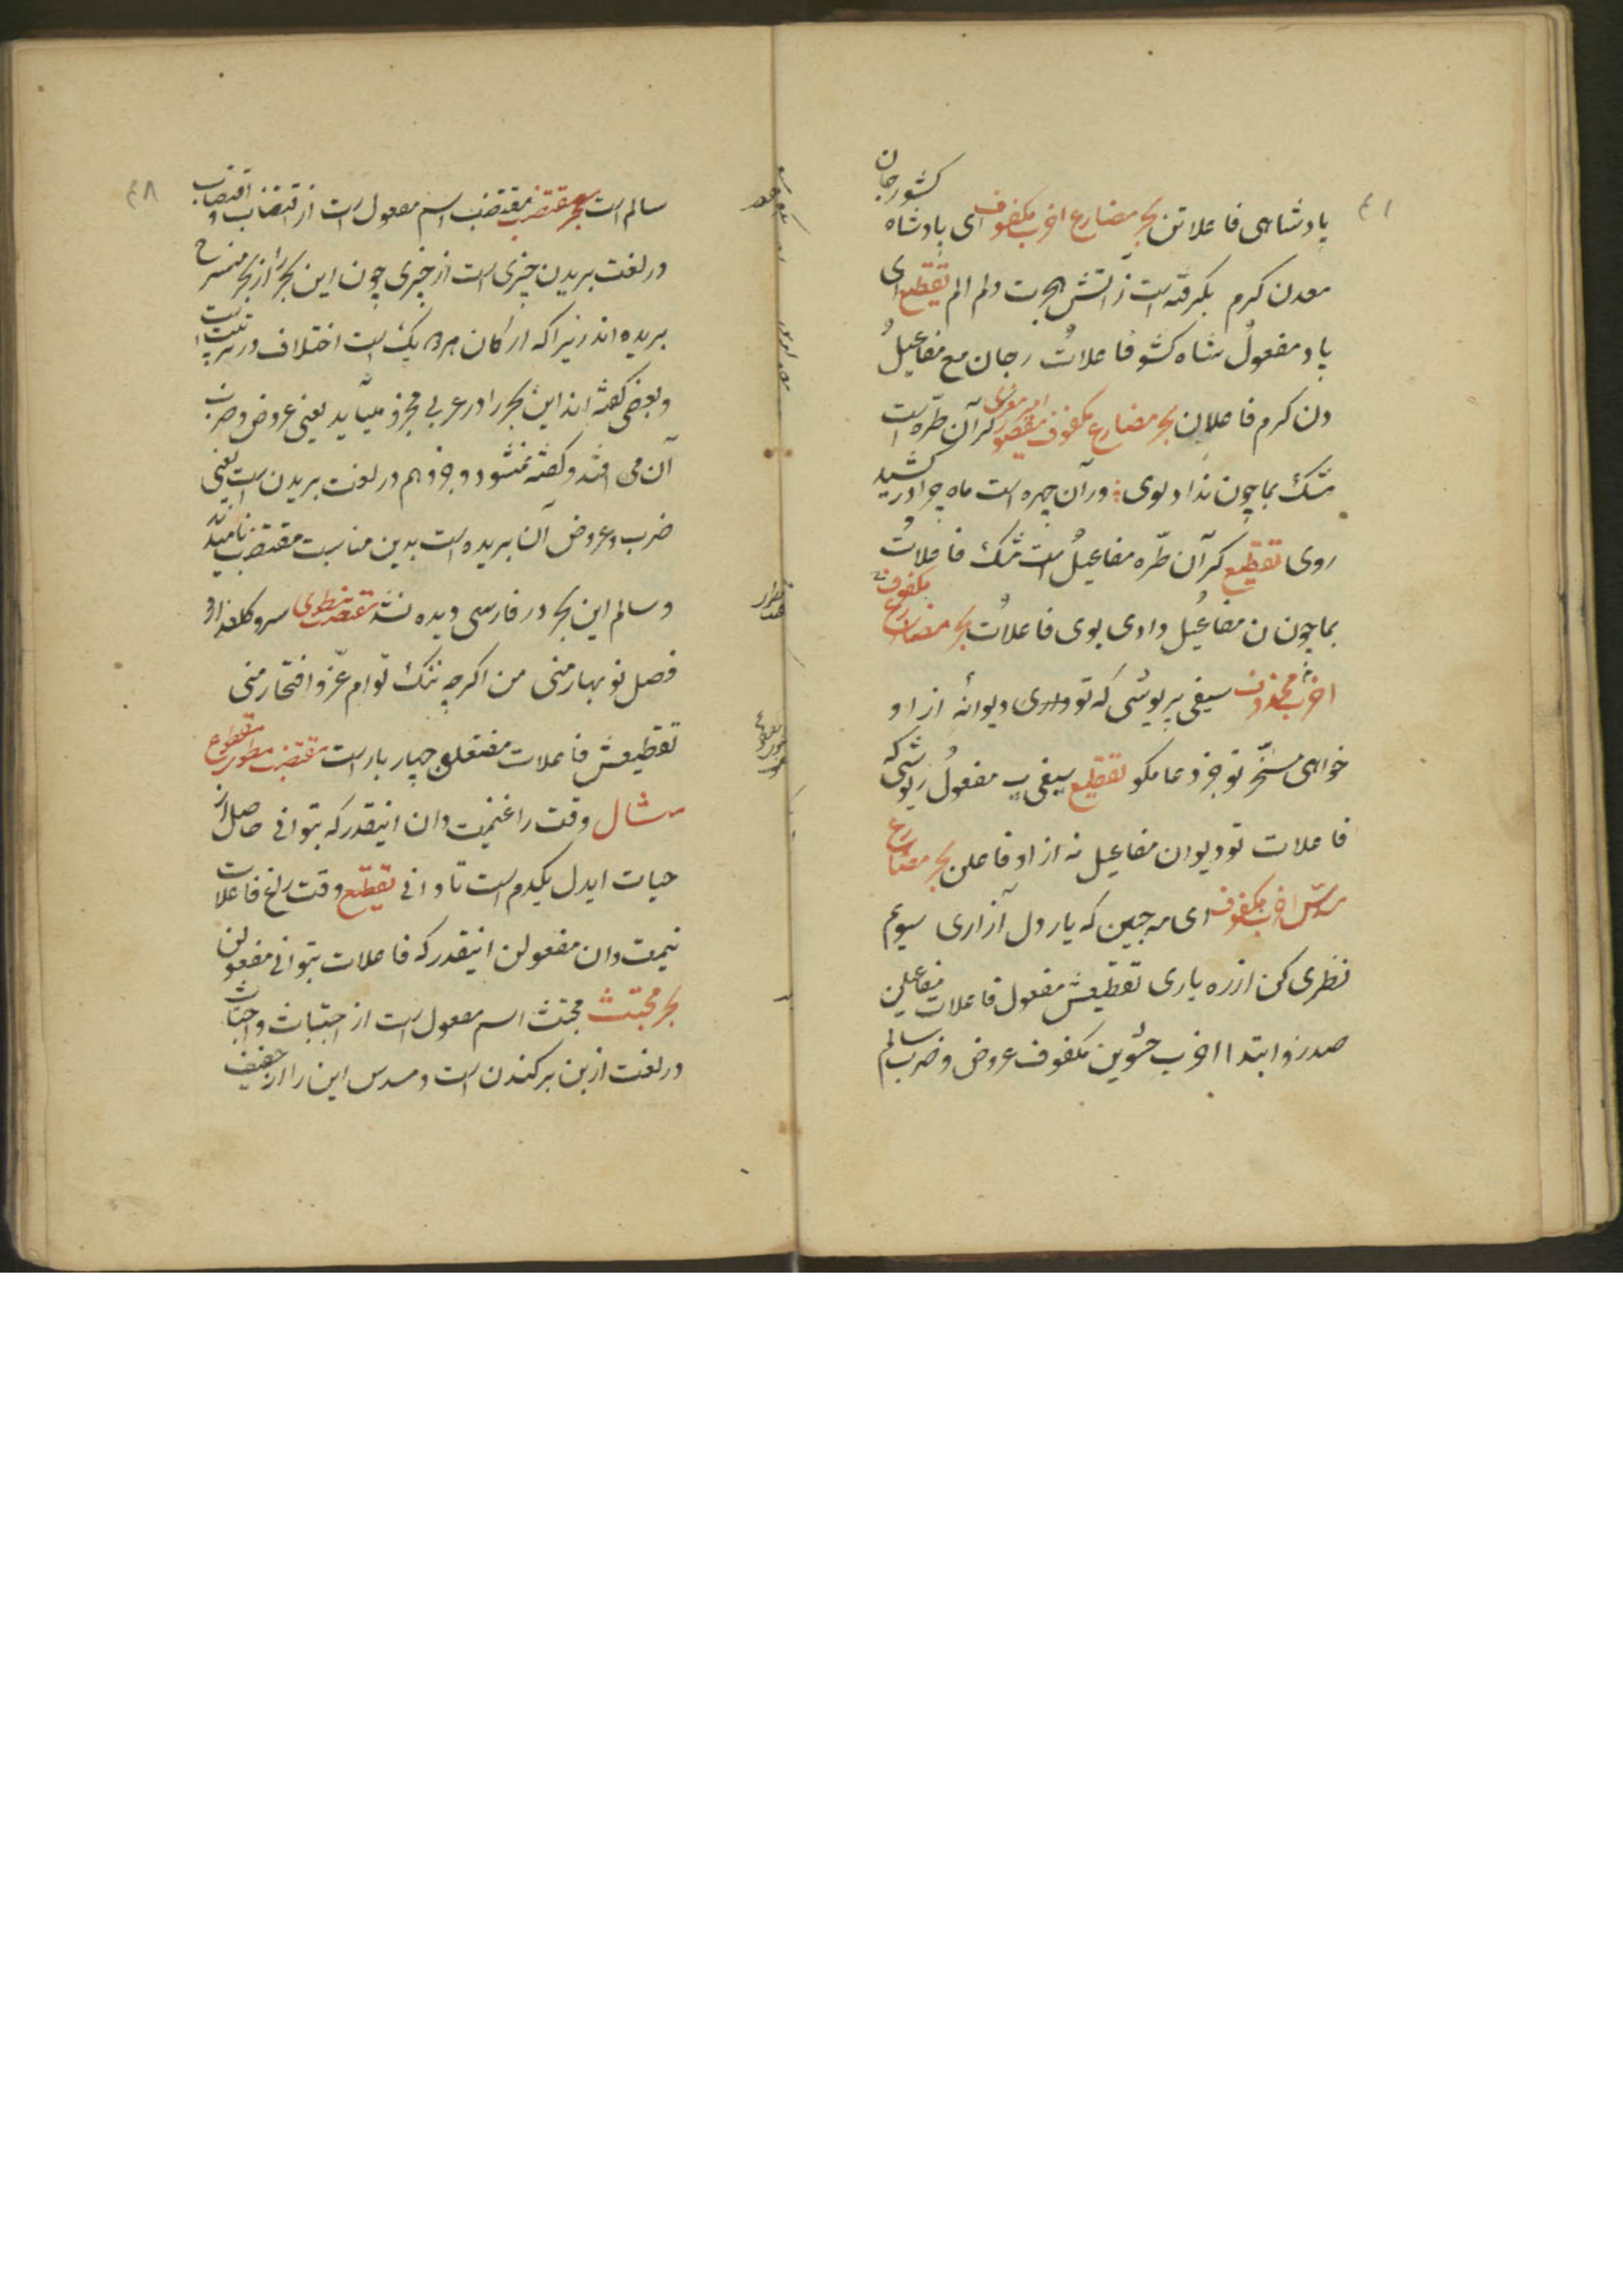 پادشاهی فاعلاتن بحر مضارع اخرب مکفوف ای پادشاه کشور جان
معدن کرم بگرفته است ز آتش هجرت دلم الم تقطیع ای
پاد مفعولُ شاه کشو فاعلاتُ رجان مع مفاعیلُ
دن کرم فاعلان بحر مضارع مکفوف مقصور امیر معزی گر آن طرّه است
مشک بما چون نداد بوی ور آن چهره است ماه چرا در کشید
روی تقطیع گر آن طرّه مفاعیلُ است مشک فاعلاتُ
بما چون ن مفاعیل دادی بوی فاعلاتُ بحر مضارع مکفوف
اخرب محذوف سیفی پریوشی که تو داری دیوانهٔ ازاو
خواهی مسخّر تو جز دعا مگو تقطیع سیفی پ مفعولُ ریوشی که
فاعلات تو دیوان مفاعیل نه ازاو فاعلن بحر مضارع
مسدّس اخرب مکفوف ای مه جبین که یار دل آزاری سیوم
نظری کن از ره یاری تقطیعش مفعول فاعلات مفاعیلن
صدر و ابتدا اخرب حشوین مکفوف عروض و ضرب سالم
۴۸
سالم است بحر مقتضب مقتضب اسم مفعول است از اقتضاب و اقتضاب
در لغت بریدن چیزی است از چیزی چون این بحر را از بحر منسرح
بریده اند زیرا که ارکان هر دو یک است اختلاف در ترتیب است
و بعضی گفته اند این بحر را در عربی مجزو میآید یعنی عروض و ضرب
آن می افتد و گفته نمیشود و جزو هم در لغت بریدن است یعنی
ضرب و عروض آن بریده است بدین مناسبت مقتضب نامیدند
و سالم این بحر در فارسی دیده نشد مقتضب مطوی سرو گلعذار و
فصل نو بهار منی من اگرچه ننگ توام عزّ و افتخار منی
تقطیعش فاعلات مفتعلن چهار بار است مقتضب مطوی مقطوع
مثال وقت را غنیمت دان اینقدر که بتوانی حاصل از
حیات ایدل یکدم است تا دانی تقطیع وقت راغ فاعلات
نیمت دان مفعولن اینقدر که فاعلات بتوانی مفعولن
بحر مجتث مجتث اسم مفعول است از اجتثاث و اجتثاث
در لغت از بن برکندن است و مسدس این را از خفیف